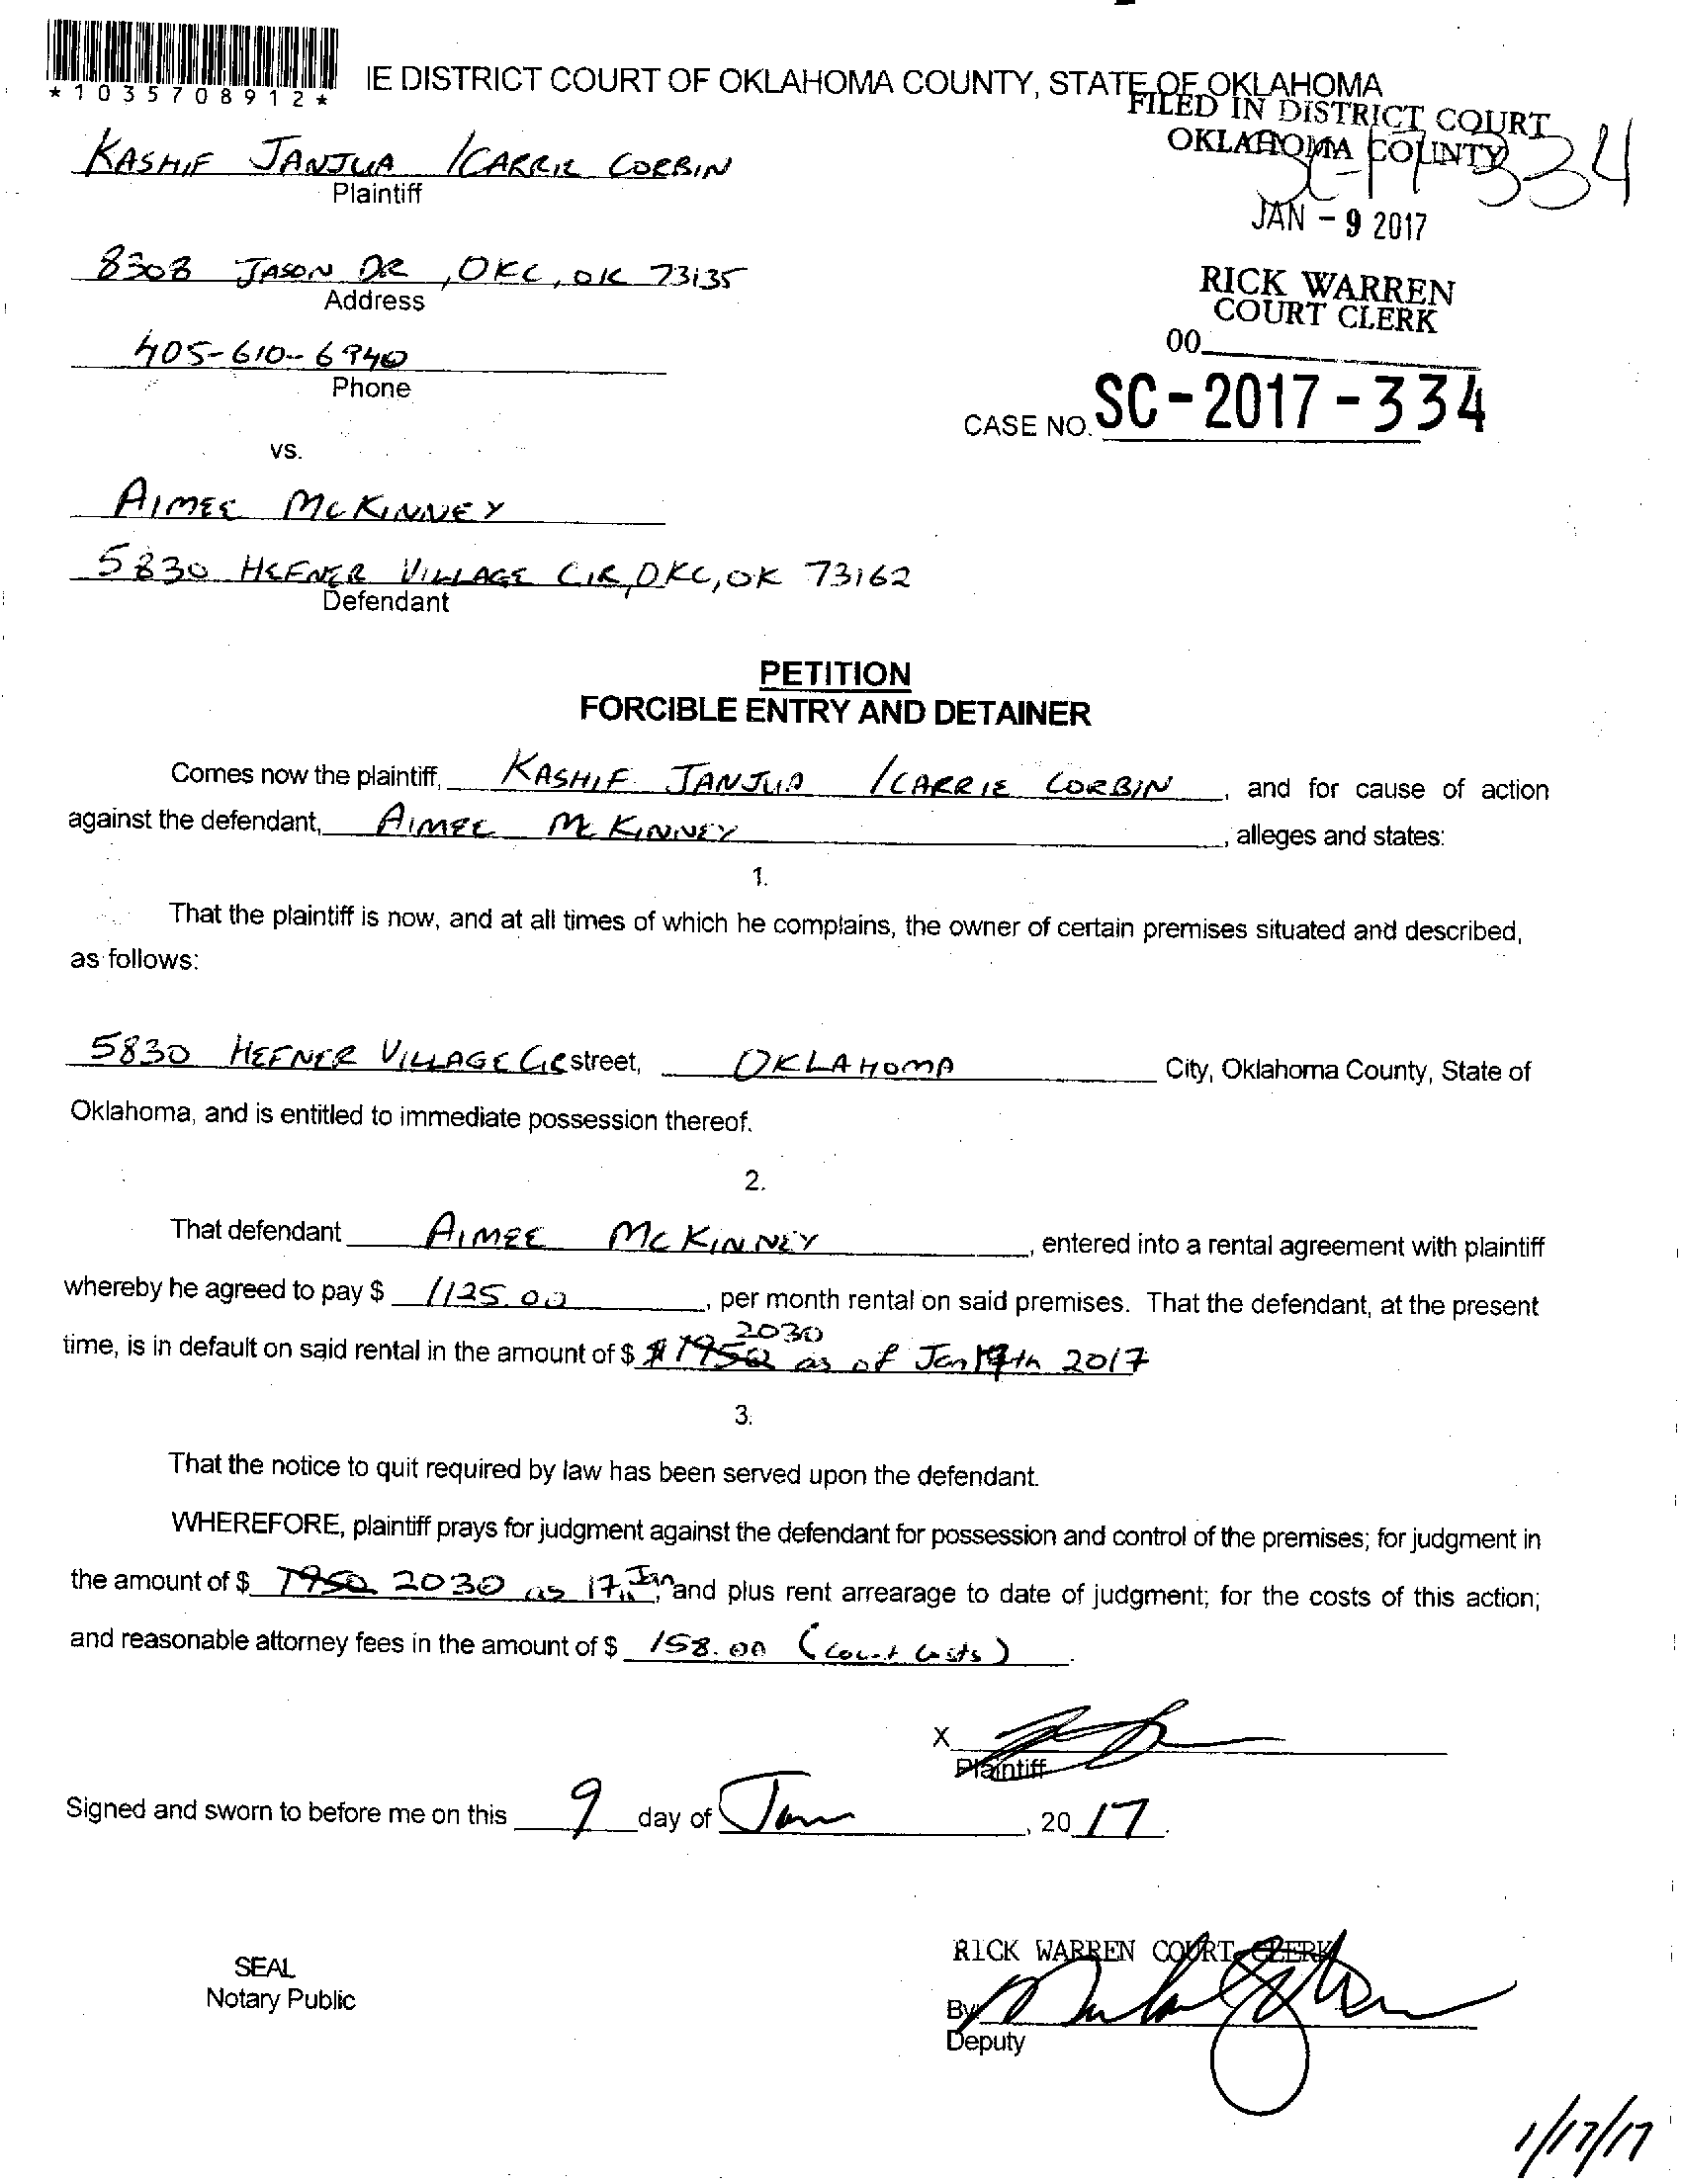 *1035708912*
IE DISTRICT COURT OF OKLAHOMA COUNTY, STATE OF OKLAHOMA
FILED IN DISTRICT COURT
OKLAHOMA COUNTY
KASHIF JANJUA / CARRIE CORBIN
SC-17-334
Plaintiff
JAN - 9 2017
8308 JASON DR, OKC, OK 73135
Address
RICK WARREN
COURT CLERK
405-610-6940
00
Phone
CASE NO. SC-2017-334
vs.
AIMEE MCKINNEY
5830 HEFNER VILLAGE CIR, OKC, OK 73162
Defendant
PETITION
FORCIBLE ENTRY AND DETAINER
Comes now the plaintiff, KASHIF JANJUA / CARRIE CORBIN, and for cause of action
against the defendant, AIMEE MCKINNEY, alleges and states:
1.
That the plaintiff is now, and at all times of which he complains, the owner of certain premises situated and described,
as follows:
5830 HEFNER VILLAGE CIR street, OKLAHOMA City, Oklahoma County, State of
Oklahoma, and is entitled to immediate possession thereof.
2.
That defendant AIMEE MCKINNEY, entered into a rental agreement with plaintiff
whereby he agreed to pay $ 1125.00, per month rental on said premises. That the defendant, at the present
2030
time, is in default on said rental in the amount of $ $1950 as of Jan 17th 2017
3.
That the notice to quit required by law has been served upon the defendant.
WHEREFORE, plaintiff prays for judgment against the defendant for possession and control of the premises; for judgment in
the amount of $ 1950 2030 as 17th Jan, and plus rent arrearage to date of judgment; for the costs of this action;
and reasonable attorney fees in the amount of $ 158.00 (Court Costs).
X
Plaintiff
Signed and sworn to before me on this 9 day of Jan, 2017.
RICK WARREN COURT CLERK
SEAL
Notary Public
By
Deputy
1/17/17